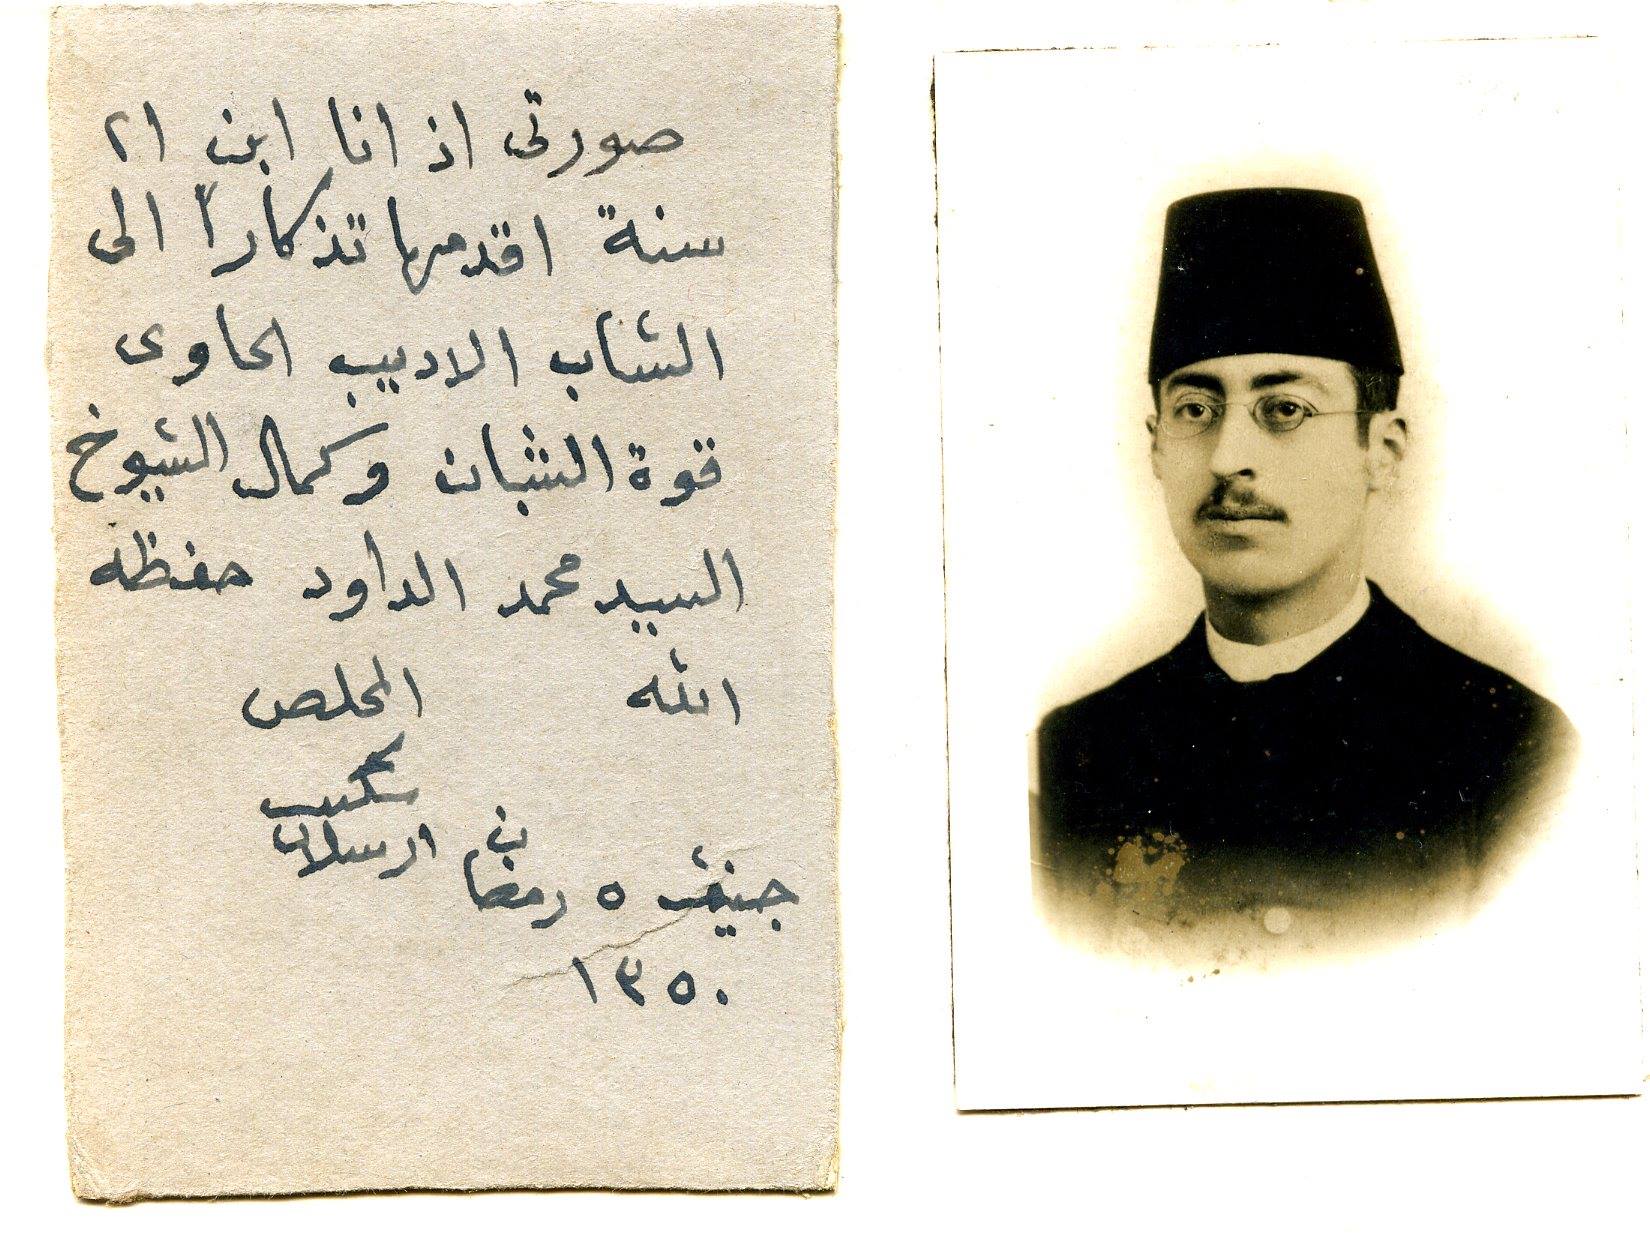 صورتى اذ انا ابن ٢١
سنة اقدمها تذكاراً الى
الشاب الاديب الحاوى
قوة الشبان وكمال الشيوخ
السيد محمد الداود حفظه
الله المخلص
شكيب
ارسلان
جنيف ٥ رمضان
١٣٥٠